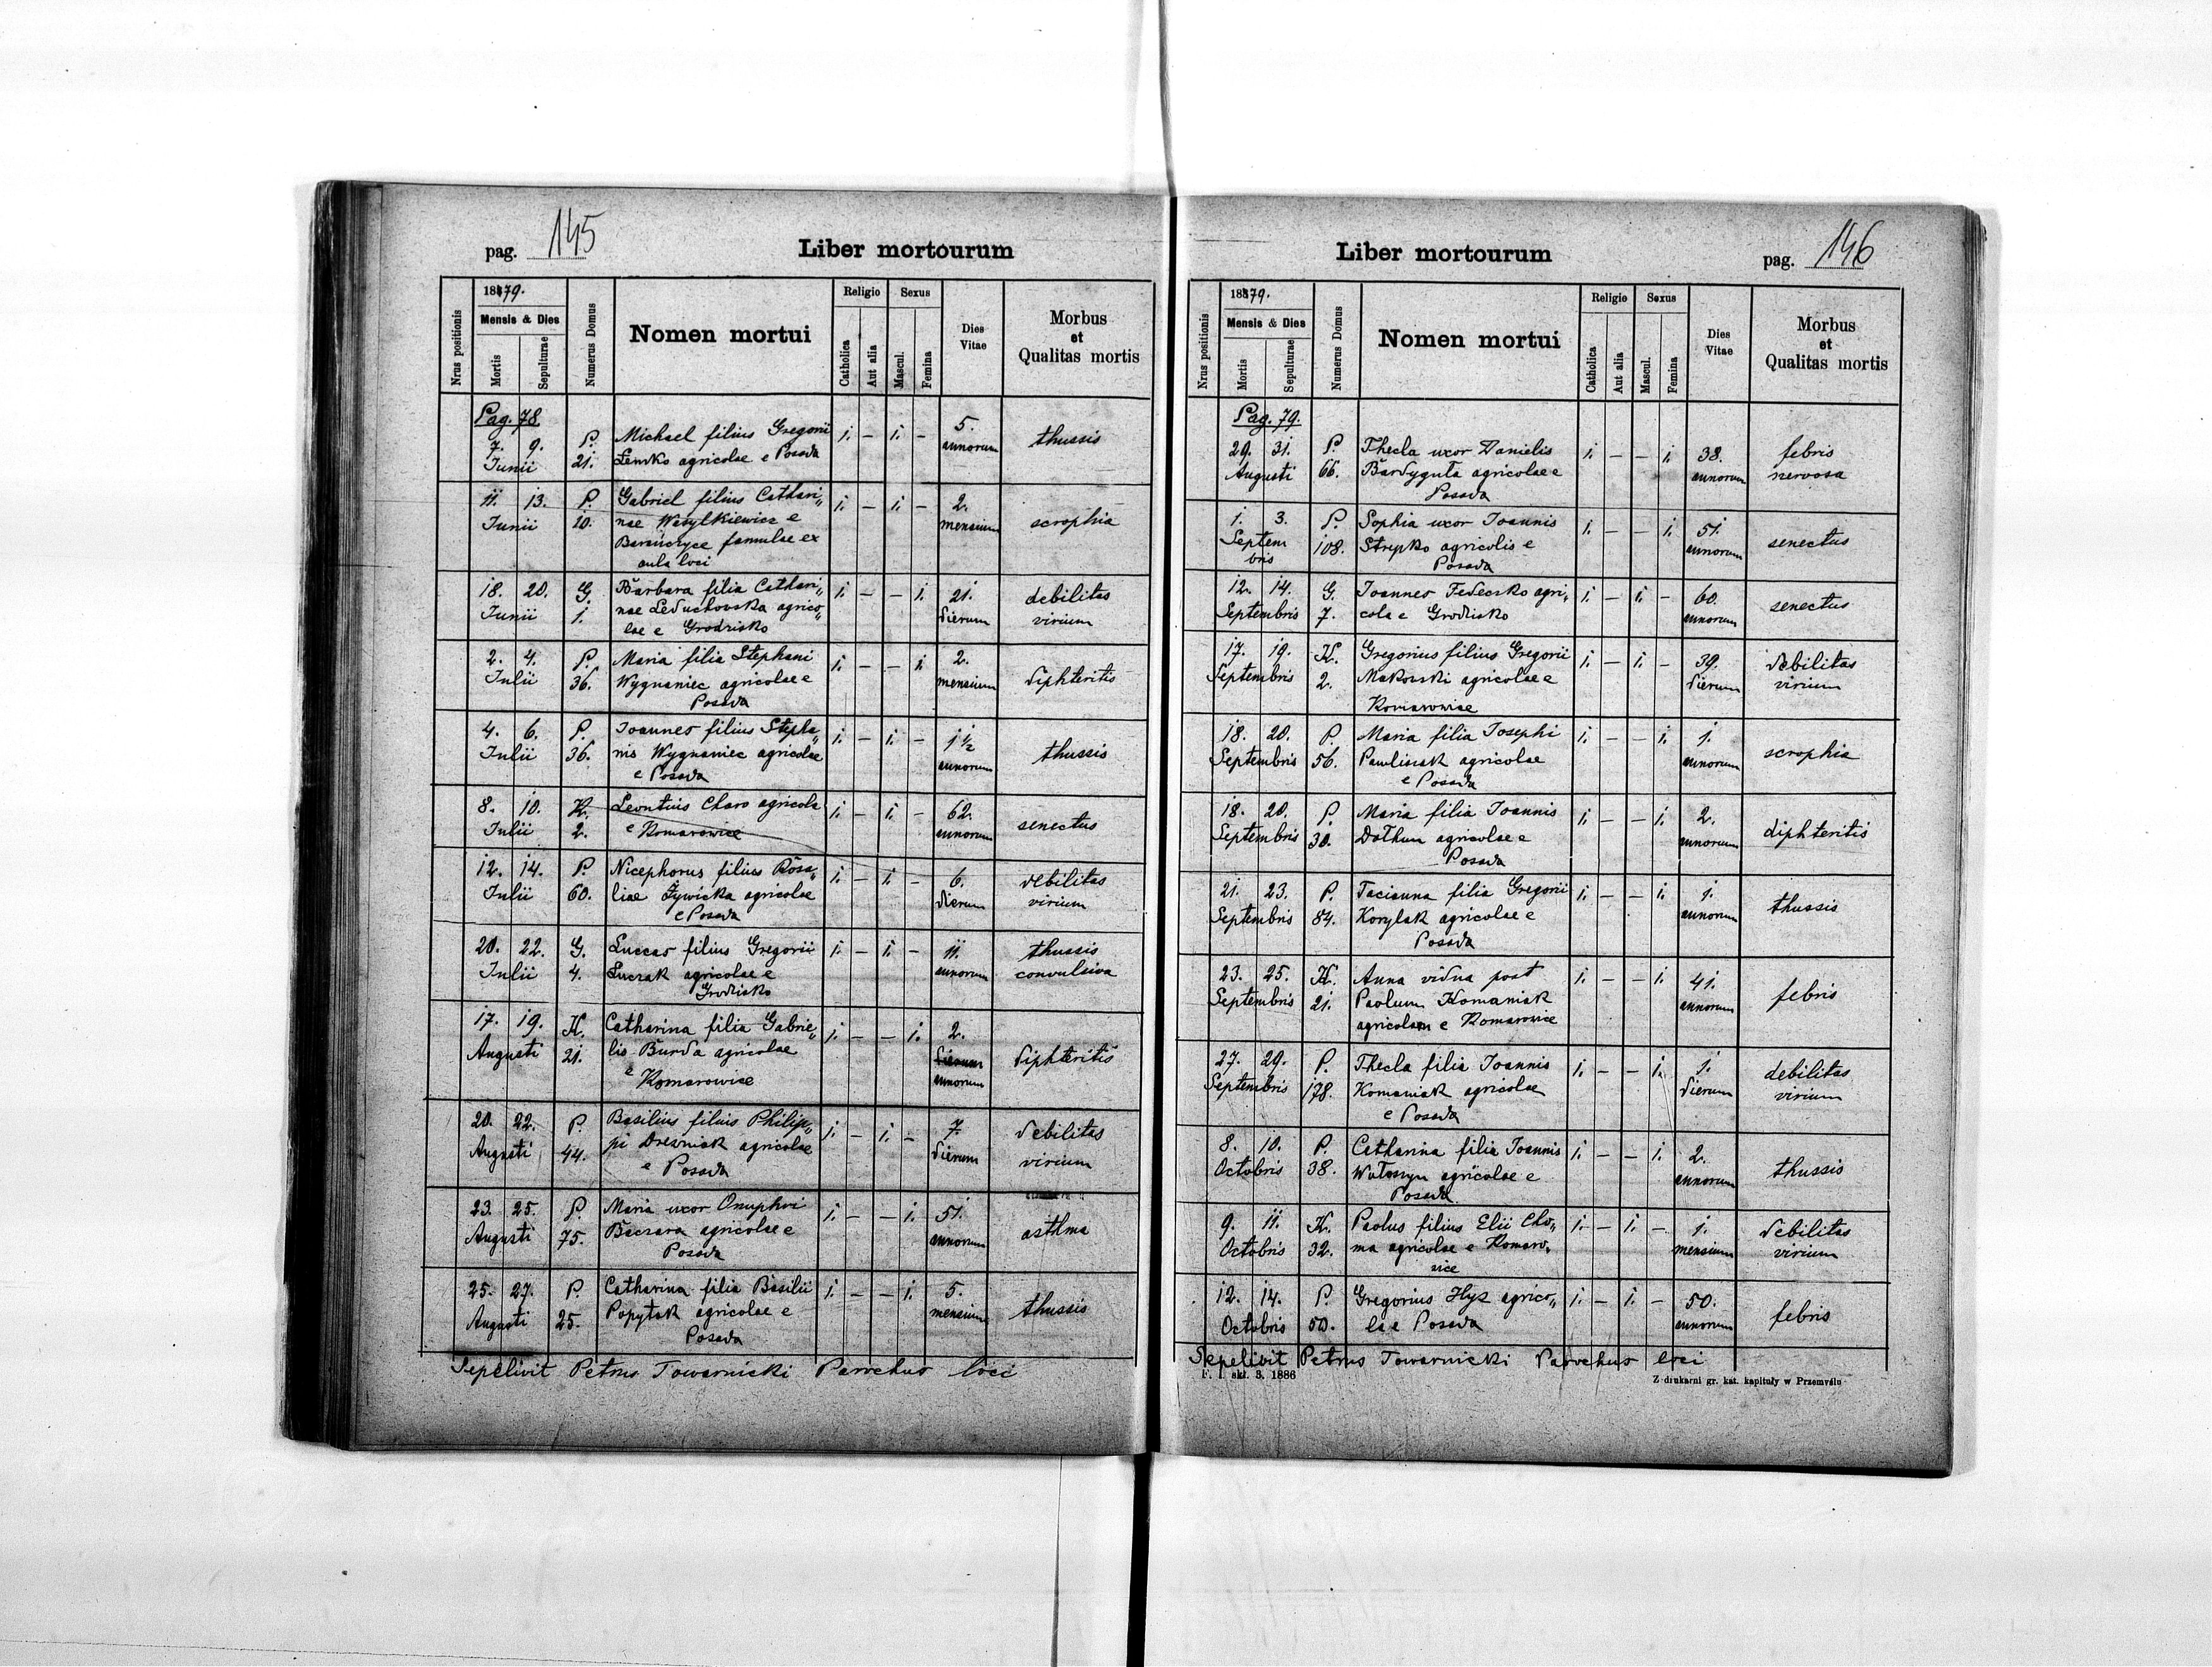 pag. 145
Liber mortourum
Nrus positionis
1879.
Mensis & Dies
Mortis
Sepulturae
Numerus Domus
Nomen mortui
Religio
Catholica
Aut alia
Sexus
Mascul.
Femina
Dies Vitae
Morbus et Qualitas mortis
Pag. 78
7. 9. P. Michael filius Gregorii 1. – 1. – 5. thussis
Junii 21. Lemko agricolae e Posada annorum
11. 13. P. Gabriel filius Cathari„ 1. – 1. – 2. scrophia
Junii 10. nae Wasylkiewicz e mensium
Barańczyce famulae ex
aula loci
18. 20. G. Barbara filia Cathari„ 1. – – 1. 21. debilitas
Junii 1. nae Leduchowska agrico„ dierum virium
lae e Grodzisko
2. 4. P. Maria filia Stephani 1. – – 1. 2. diphteritis
Julii 36. Wygnaniec agricolae e mensium
Posada
4. 6. P. Joannes filius Stepha„ 1. – 1. – 1½ thussis
Julii 36. nis Wygnaniec agricolae annorum
e Posada
8. 10. K. Leontius Charo agricola 1. – 1. – 62. senectus
Julii 2. e Komarowice annorum
12. 14. P. Nicephorus filius Rosa„ 1. – 1. – 6. debilitas
Julii 60. liae Żywicka agricolae dierum virium
e Posada
20. 22. G. Luccas filius Gregorii 1. – 1. – 11. thussis
Julii 4. Luczak agricolae e annorum convulsiva
Grodzisko
17. 19. K. Catharina filia Gabrie„ 1. – – 1. 2. diphteritis
Augusti 21. lis Burda agricolae dierum
e Komarowice annorum
20. 22. P. Basilius filius Philip„ 1. – 1. – 7. debilitas
Augusti 44. pi Drewniak agricolae dierum virium
e Posada
23. 25. P. Maria uxor Onuphri 1. – – 1. 51. asthma
Augusti 75. Baczara agricolae e annorum
Posada
25. 27. P. Catharina filia Basilii 1. – – 1. 5. thussis
Augusti 25. Popytak agricolae e mensium
Posada
Sepelivit Petrus Towarnicki Parochus loci
Liber mortourum
pag. 146
Nrus positionis
1879.
Mensis & Dies
Mortis
Sepulturae
Numerus Domus
Nomen mortui
Religio
Catholica
Aut alia
Sexus
Mascul.
Femina
Dies Vitae
Morbus et Qualitas mortis
Pag. 79.
29. 31. P. Thecla uxor Danielis 1. – – 1. 38. febris
Augusti 66. Bardyguła agricolae e annorum nervosa
Posada
1. 3. P. Sophia uxor Joannis 1. – – 1. 51. senectus
Septem 108. Strepko agricolis e annorum
bris Posada
12. 14. G. Joannes Fedeczko agri„ 1. – 1. – 60. senectus
Septembris 7. cola e Grodzisko annorum
17. 19. K. Gregorius filius Gregorii 1. – 1. – 39. debilitas
Septembris 2. Makowski agricolae e dierum virium
Komarowice
18. 20. P. Maria filia Josephi 1. – – 1. 1. scrophia
Septembris 56. Pawliszak agricolae annorum
e Posada
18. 20. P. Maria filia Joannis 1. – – 1. 2. diphteritis
Septembris 30. Dathun agricolae e annorum
Posada
21. 23. P. Tacianna filia Gregorii 1. – – 1. 1. thussis
Septembris 84. Korylak agricolae e annorum
Posada
23. 25. K. Anna vidua post 1. – – 1. 41. febris
Septembris 21. Paolum Komaniak annorum
agricolam e Komarowice
27. 29. P. Thecla filia Joannis 1. – – 1. 1. debilitas
Septembris 178. Komaniak agricolae dierum virium
e Posada
8. 10. P. Catharina filia Joannis 1. – – 1. 2. thussis
Octobris 38. Wołoszyn agricolae e annorum
Posada
9. 11. K. Paolus filius Elii Cho„ 1. – 1. – 1. debilitas
Octobris 32. ma agricolae e Komaro„ mensium virium
wice
12. 14. P. Gregorius Hyz agrico„ 1. – 1. – 50. febris
Octobris 50. la e Posada annorum
Sepelivit Petrus Towarnicki Parochus loci
F. I. skł. 3. 1886
Z drukarni gr. kat. kapituły w Przemyślu